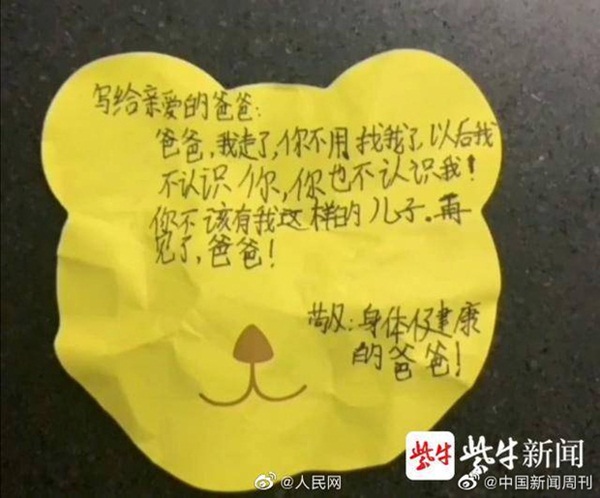 写给亲爱的爸爸:
爸爸,我走了,你不用找我了,以后我
不认识你,你也不认识我!
你不该有我这样的儿子。再
见了,爸爸!
敬:身体健康
的爸爸!
紫牛 紫牛新闻
@人民网
@中国新闻周刊